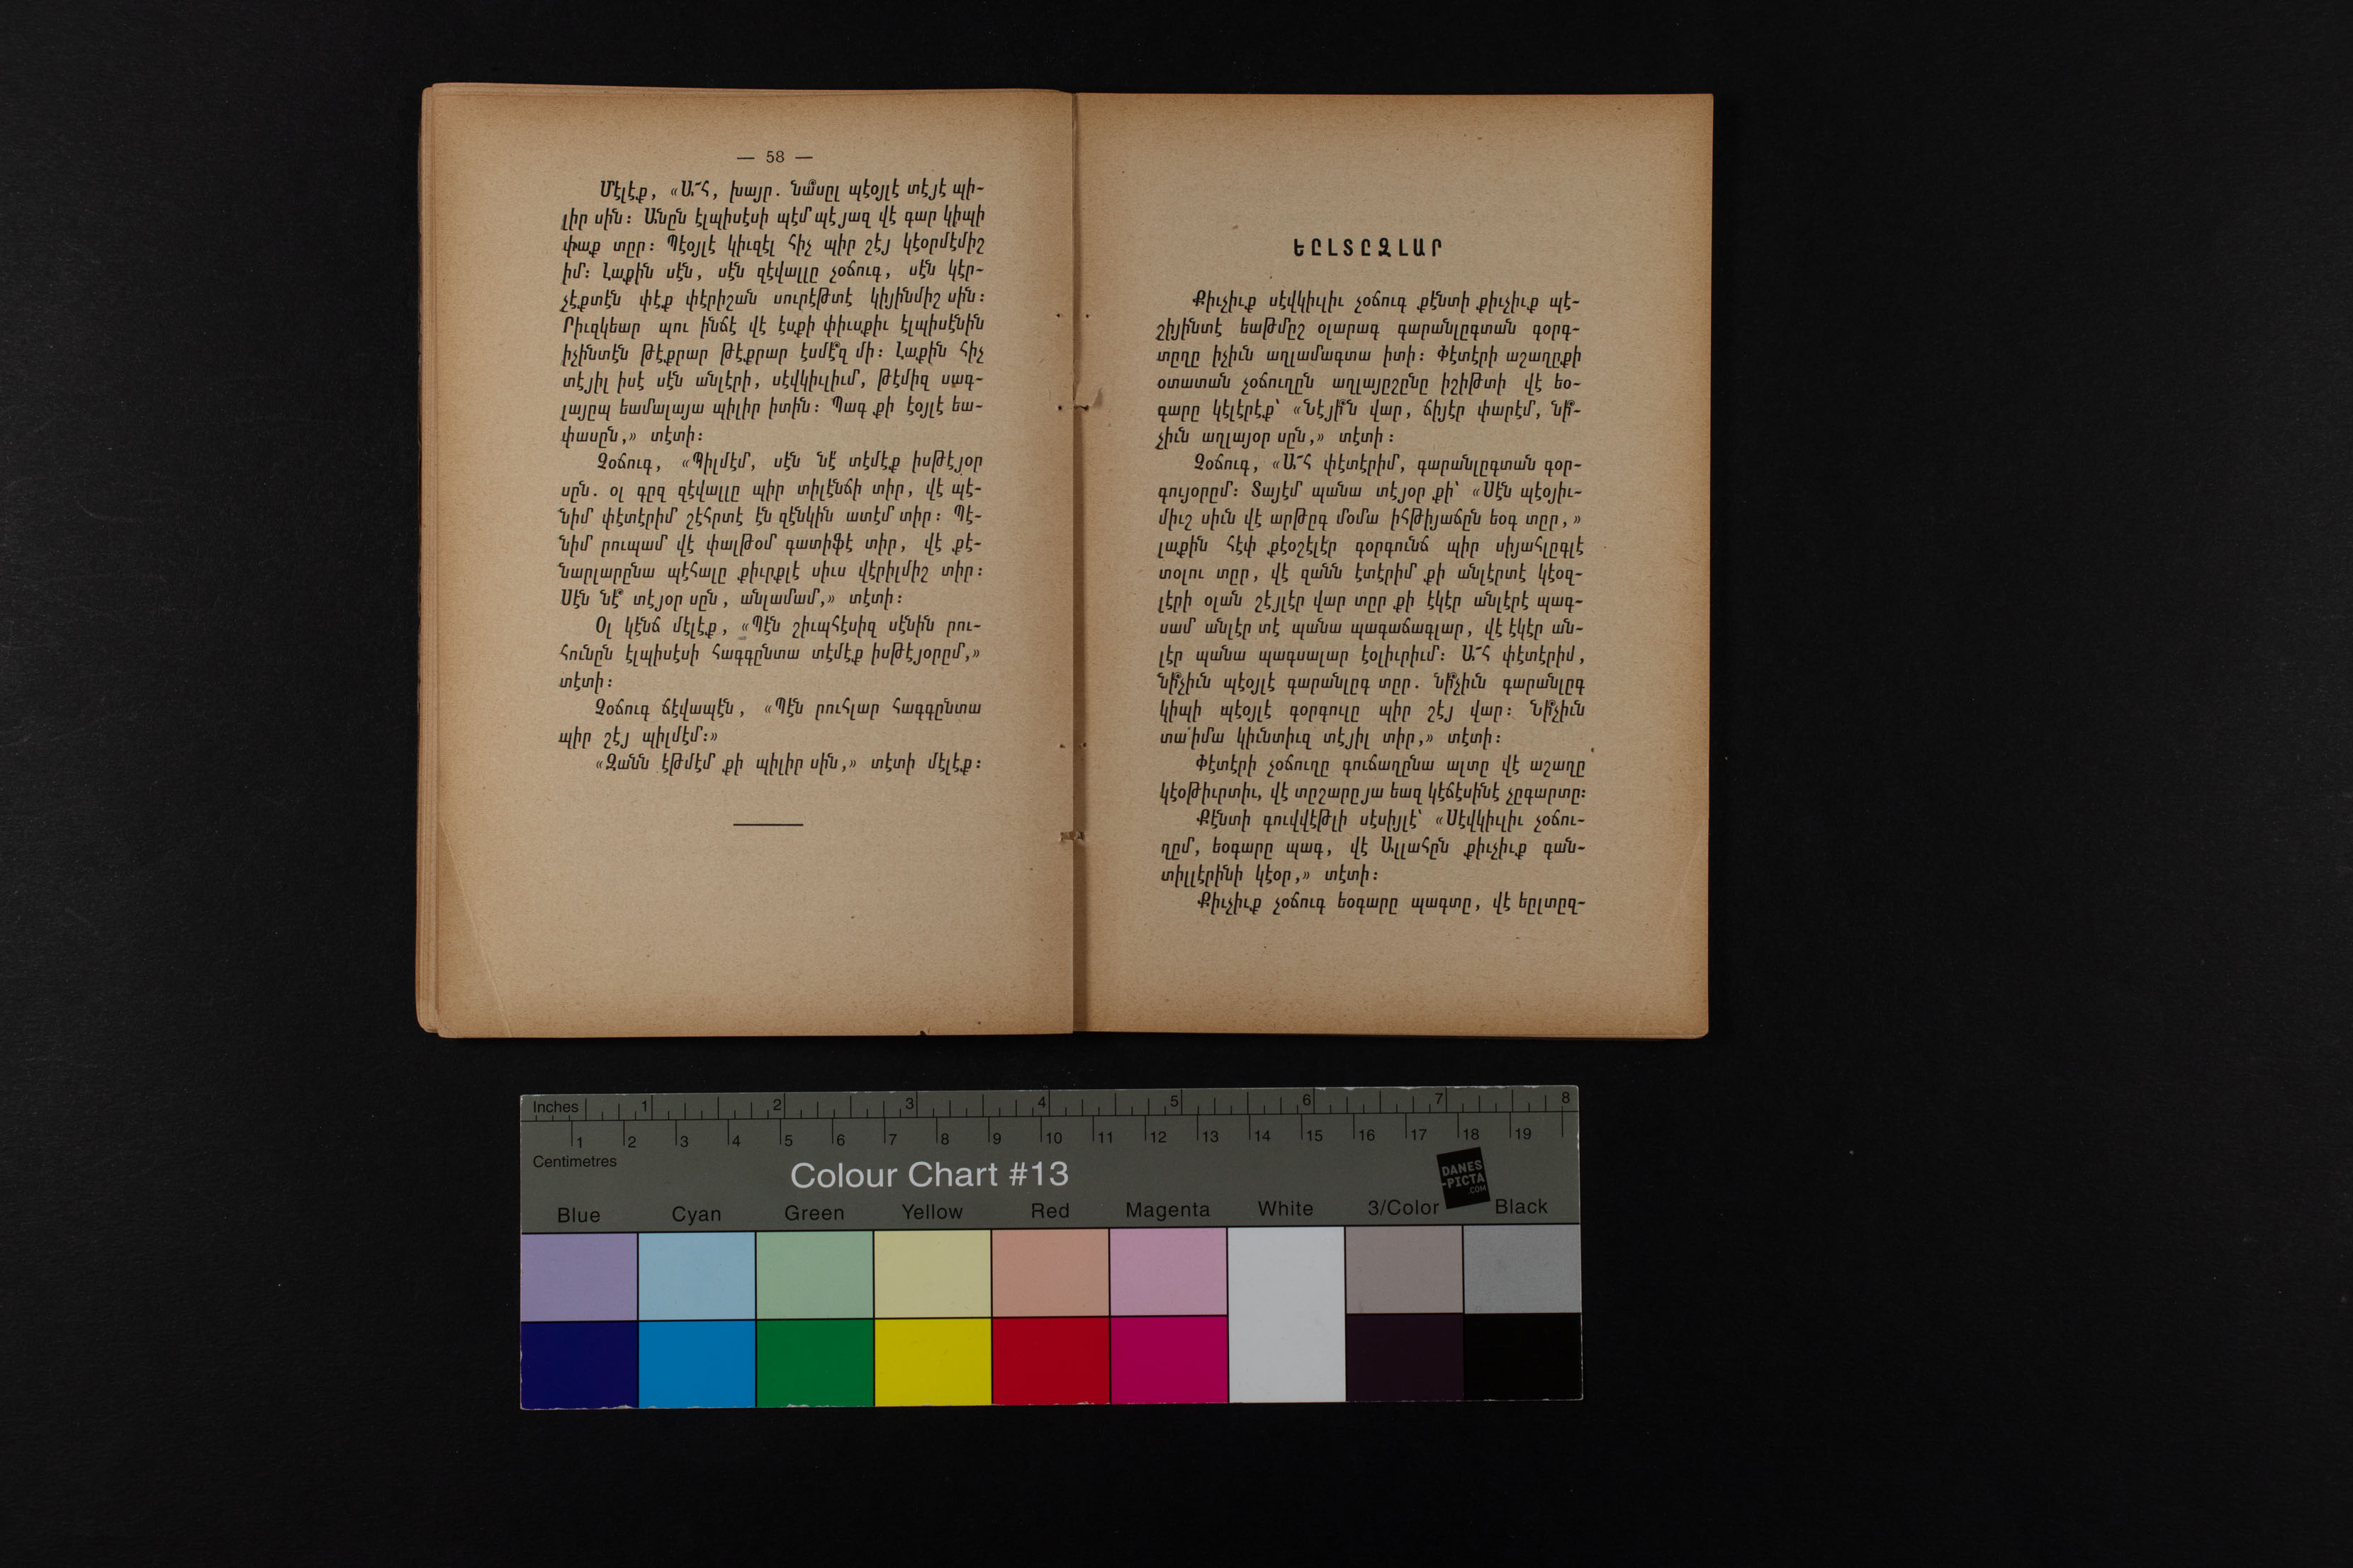 — 58 —
Մէլէք, «Ա՜հ, խայր. նա՞սըլ պէօյլէ տէյէ պի-
լիր սին։ Անըն էլպիսէսի պէմ պէյազ վէ գար կիպի
փաք տըր։ Պէօյլէ կիւզէլ հիչ պիր շէյ կէօրմէմիշ
իմ։ Լաքին սէն, սէն զէվալլը չօճուգ, սէն կէր-
չէքտէն փէք փէրիշան սուրէթտէ կիյինմիշ սին։
Րիւզկեար պու ինճէ վէ էսքի փիւսքիւ էլպիսէնին
իչինտէն թէքրար թէքրար էսմէ՞զ մի։ Լաքին հիչ
տէյիլ իսէ սէն անլէրի, սէվկիւլիւմ, թէմիզ սագ-
լայըպ եամալայա պիլիր իտին։ Պագ քի էօյլէ եա-
փասըն,» տէտի։
Չօճուգ, «Պիլմէմ, սէն նէ՞ տէմէք իսթէյօր
սըն. օլ գըզ զէվալլը պիր տիլէնճի տիր, վէ պէ-
նիմ փէտէրիմ շէհրտէ էն զէնկին ատէմ տիր։ Պէ-
նիմ րուպամ վէ փալթօմ գատիֆէ տիր, վէ քէ-
նարլարընա պէհալը քիւրքլէ սիւս վէրիլմիշ տիր։
Սէն նէ՞ տէյօր սըն, անլամամ,» տէտի։
Օլ կէնճ մէլէք, «Պէն շիւպհէսիզ սէնին րու-
հունըն էլպիսէսի հագգընտա տէմէք իսթէյօրըմ,»
տէտի։
Չօճուգ ճէվապէն, «Պէն րուհլար հագգընտա
պիր շէյ պիլմէմ։»
«Զանն էթմէմ քի պիլիր սին,» տէտի մէլէք։
ԵԸԼՏԸԶԼԱՐ
Քիւչիւք սէվկիւլիւ չօճուգ քէնտի քիւչիւք պէ-
շիյինտէ եաթմըշ օլարագ գարանլըգտան գօրգ-
տըղը իչիւն աղլամագտա իտի։ Փէտէրի աշաղըքի
օտատան չօճուղըն աղլայըշընը իշիթտի վէ եօ-
գարը կէլէրէք՝ «Նէյի՞ն վար, ճիյէր փարէմ, նի՞-
չիւն աղլայօր սըն,» տէտի։
Չօճուգ, «Ա՜հ փէտէրիմ, գարանլըգտան գօր-
գույօրըմ։ Տայէմ պանա տէյօր քի՝ «Սէն պէօյիւ-
միւշ սիւն վէ արթըգ մօմա իհթիյաճըն եօգ տըր,»
լաքին հէփ քէօշէլէր գօրգունճ պիր սիյահլըգլէ
տօլու տըր, վէ զանն էտէրիմ քի անլէրտէ կէօզ-
լէրի օլան շէյլէր վար տըր քի էկէր անլէրէ պագ-
սամ անլէր տէ պանա պագաճագլար, վէ էկէր ան-
լէր պանա պագսալար էօլիւրիւմ։ Ա՜հ փէտէրիմ,
նի՞չիւն պէօյլէ գարանլըգ տըր. նի՞չիւն գարանլըգ
կիպի պէօյլէ գօրգուլը պիր շէյ վար։ Նի՞չիւն
տա՛իմա կիւնտիւզ տէյիլ տիր,» տէտի։
Փէտէրի չօճուղը գուճաղընա ալտը վէ աշաղը
կէօթիւրտիւ, վէ տըշարըյա եազ կէճէսինէ չըգարտը։
Քէնտի գուվվէթլի սէսիյլէ՝ «Սէվկիւլիւ չօճու-
ղըմ, եօգարը պագ, վէ Ալլահըն քիւչիւք գան-
տիլլէրինի կէօր,» տէտի։
Քիւչիւք չօճուգ եօգարը պագտը, վէ եըլտըզ-
Inches 1 2 3 4 5 6 7 8
1 2 3 4 5 6 7 8 9 10 11 12 13 14 15 16 17 18 19
Centimetres
Colour Chart #13
DANES
-PICTA
.COM
Blue Cyan Green Yellow Red Magenta White 3/Color Black